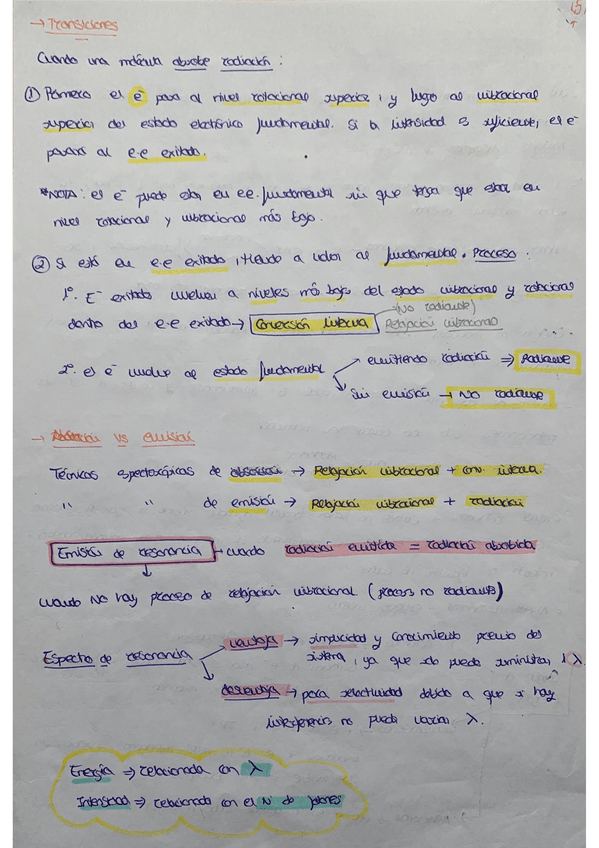 5
→ Transiciones
Cuando una molécula absorbe radiación:
① Primero el e⁻ pasa al nivel rotacional superior, y luego al vibracional
superior del estado electrónico fundamental. Si la intensidad es suficiente, el e⁻
pasará al e.e exitado.
*NOTA: el e⁻ puede estar en e.e. fundamental sin que tenga que estar en
nivel rotacional y vibracional más bajo.
② Si está en e.e exitado, tiende a volver al fundamental. PROCESO:
1º. E⁻ exitado vuelve a niveles más bajo del estado vibracional y rotacional
(No radiante)
dentro del e.e exitado → Conversión interna Relajación vibracional
2º. el e⁻ vuelve al estado fundamental → emitiendo radiación ⇒ Radiante
↘ Sin emisión → NO radiante
→ Absorción VS emisión
Técnicas espectoscópicas de absorción → Relajación vibracional + conv. interna.
" " de emisión → Relajación vibracional + radiación
Emisión de resonancia → cuando radiación emitida = radiación absorbida
↓
cuando NO hay proceso de relajación vibracional (procesos no radiante)
ventaja → simplicidad y conocimiento previo del
Espectro de resonancia sistema, ya que solo puedo suministrar 1 λ
desventaja → poca selectividad debido a que si hay
interferencias no puedo variar λ.
Energía ⇒ relacionada con λ
Intensidad ⇒ relacionado con el Nº de fotones